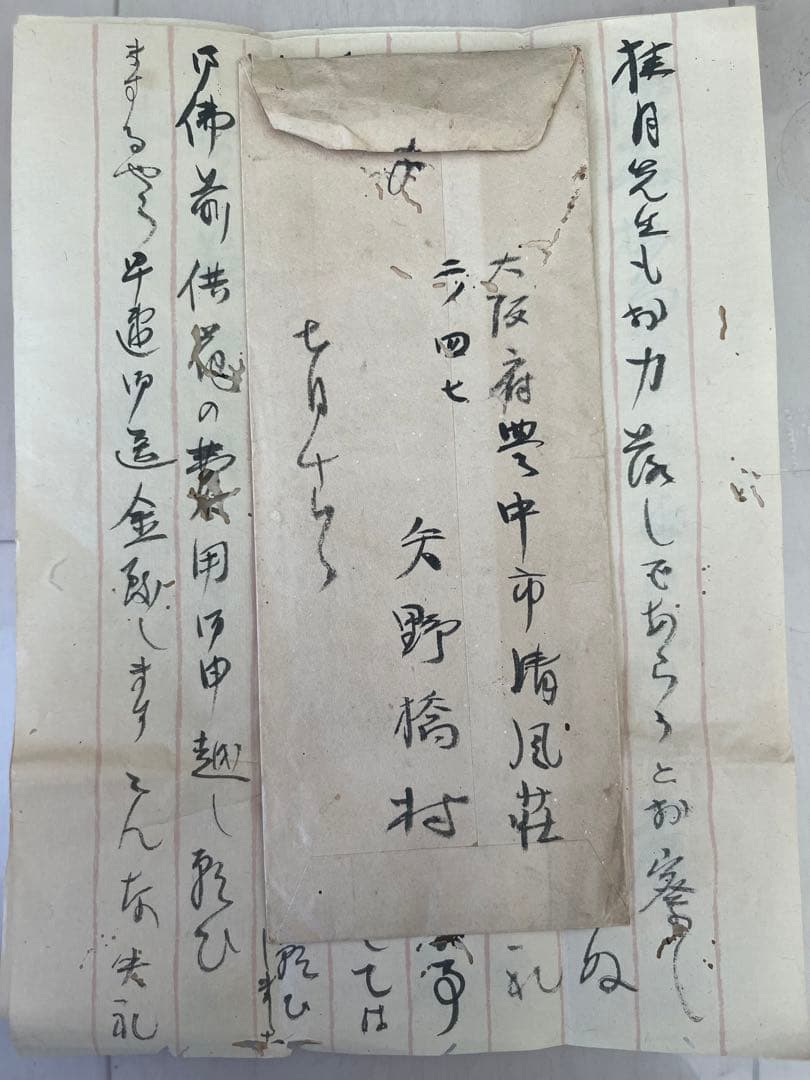 桂月先生もお力落しであらうとお察し
ぬ
礼
事
しては
願ひ
しました
御佛前供花の費用御申越し願ひ
ますすやう早速御送金致します こんな失礼
大阪府豊中市清風荘
二ノ四七
矢野橋村
七月十